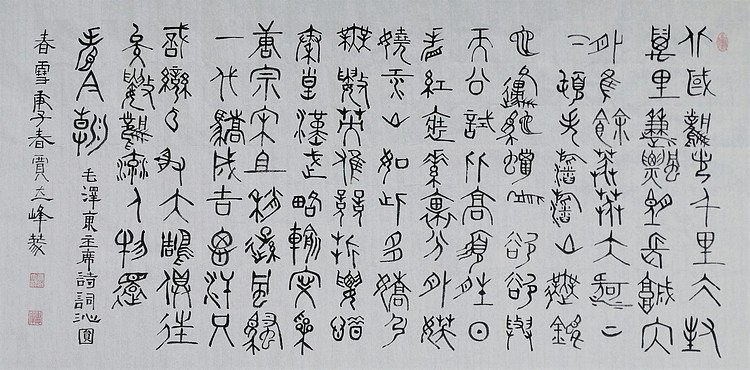 北國風光千里冰封
萬里雪飄望長城内
外惟餘莽莽大河上
下頓失滔滔山舞銀
蛇原馳蠟象欲與
天公試比高須晴日
看紅裝素裹分外妖
嬈江山如此多嬌引
無數英雄競折腰惜
秦皇漢武略輸文采
唐宗宋祖稍遜風騷
一代驕成吉思汗只
識彎弓射大雕俱往
矣數風流人物還
看今朝 毛澤東主席詩詞沁園
春雪庚子春賈立峰篆